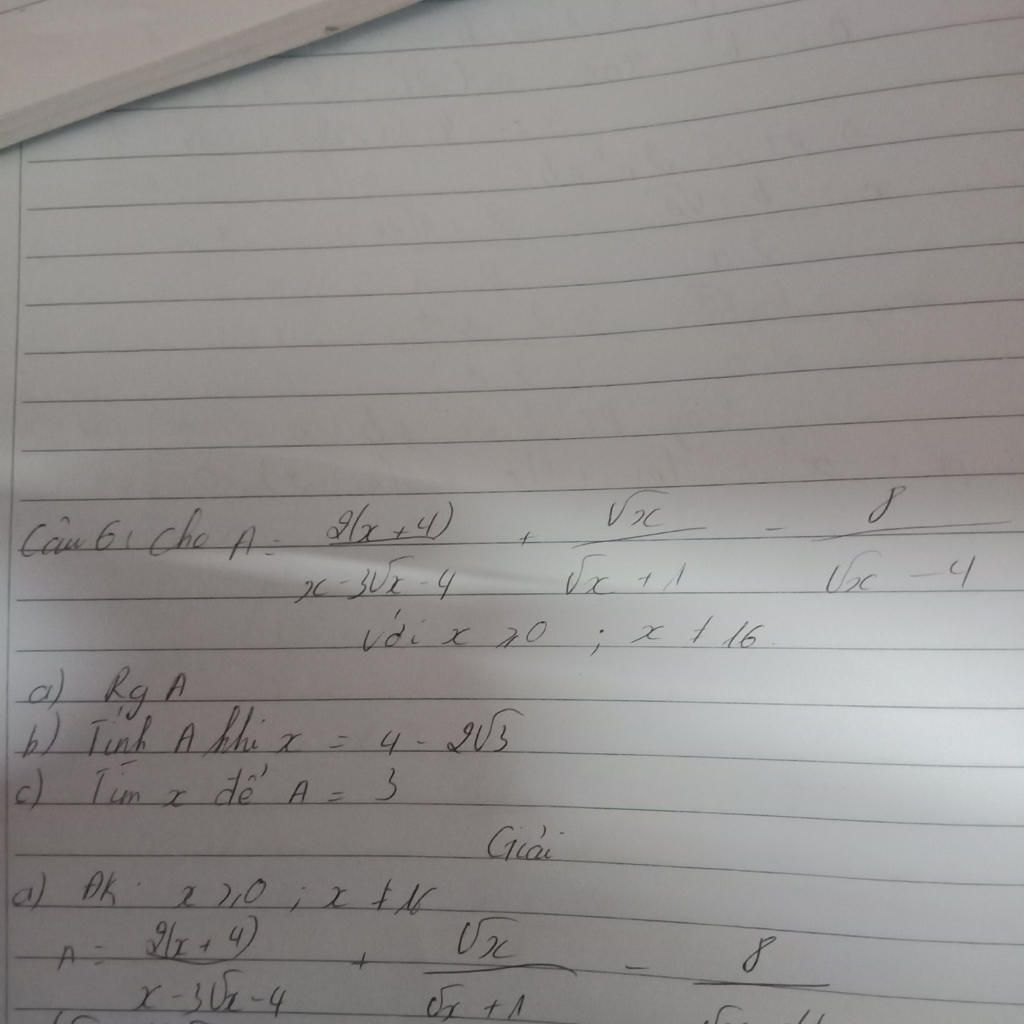 Câu 6: Cho A = 2(x + 4) / (x - 3√x - 4) + √x / (√x + 1) - 8 / (√x - 4)
Với x ≥ 0 ; x ≠ 16
a) Rg A
b) Tính A khi x = 4 - 2√3
c) Tìm x để A = 3
Giải
a) ĐK: x ≥ 0 ; x ≠ 16
A = 2(x + 4) / (x - 3√x - 4) + √x / (√x + 1) - 8